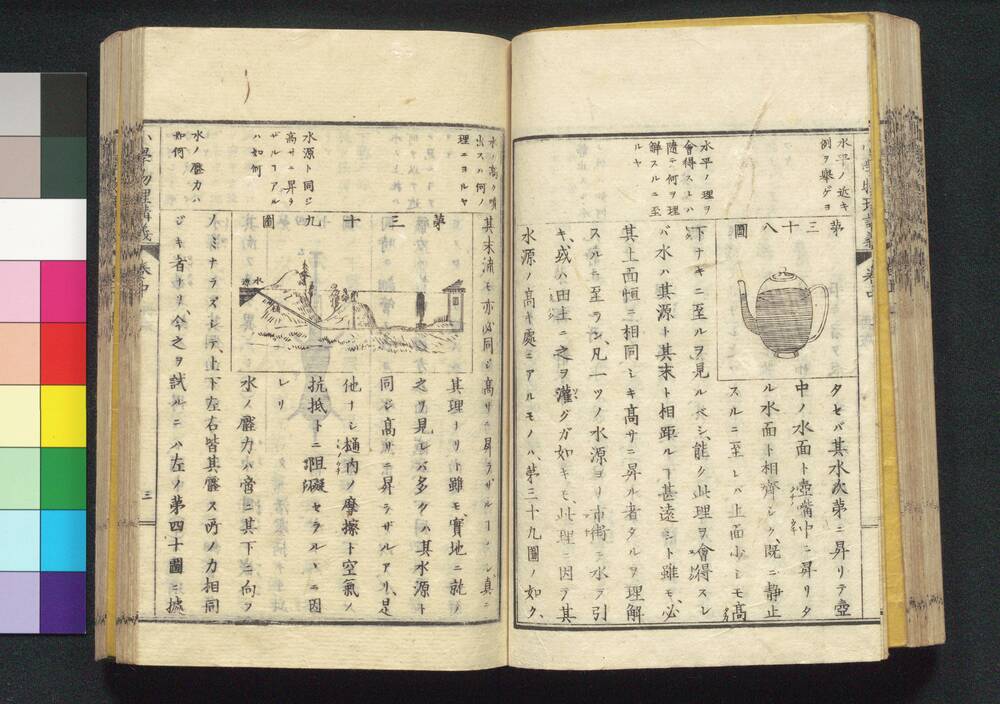 水平ノ近キ
例ヲ擧ゲヨ
第三十八圖
タセバ其水次第ニ昇リテ壺
中ノ水面ト壺嘴中ニ昇リタ
ル水面ト相齊シク、既ニ靜止
スルニ至レバ上面小シモ高
下ナキニ至ルヲ見ルベシ、能ク此理ヲ會得スレ
バ水ハ其源ト其末ト相距ルヿ甚遠シト雖モ、必
其上面恒ニ相同シキ高サニ昇ル者タルヲ理解
スルニ至ラン、凡一ツノ水源ヨリ市街ニ水ヲ引
キ、或ハ田土ニ之ヲ灌グガ如キモ、此理ニ因ラ其
水源ノ高キ處ニアルモノハ、第三十九圖ノ如ク、
水平ノ理ヲ
會得スレハ
隨テ何ヲ理
解スルニ至
ルヤ
水ノ高ク噴
出スハ何ノ
理ニヨルヤ
其末流モ亦必同シ高サニ昇ラザルヿナシ、眞ニ
第三十九圖
水源
其理アリト雖モ、實地ニ就テ
之ヲ見レバ多クハ其水源ト
同シ高サニ昇ラザルアリ、是
他ナシ樋內ノ摩擦ト空氣ノ
抗抵トニ阻礙セラルヽニ因
レリ
水源ト同シ
高サニ昇ラ
ザルヿアル
ハ如何
水ノ壓力ハ啻ニ其下ニ向フ
ノミナラズシテ、上下左右皆其壓ス所ノ力相同
ジキ者ナリ、今之ヲ試ルニハ左ノ第四十圖ニ據
水ノ壓力ハ
如何
小學物理講義
卷中
三